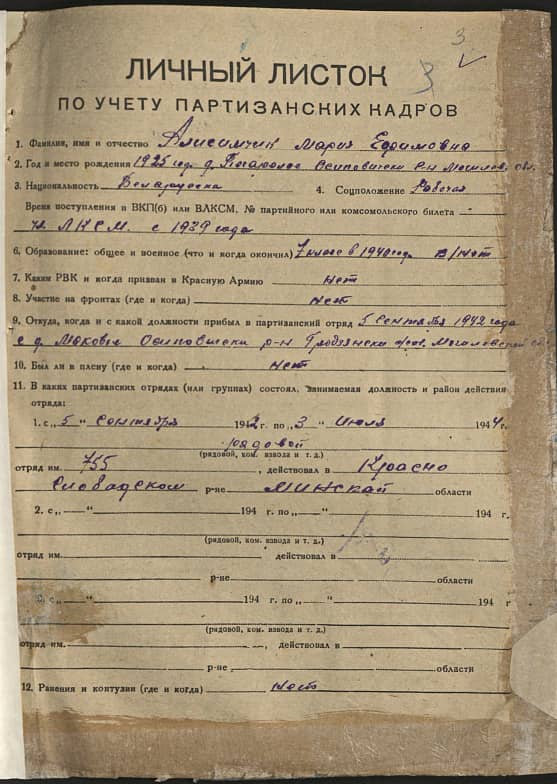 3
3
ЛИЧНЫЙ ЛИСТОК
ПО УЧЕТУ ПАРТИЗАНСКИХ КАДРОВ
1. Фамилия, имя и отчество Анисимчик Мария Ефимовна
2. Год и место рождения 1925 год. д. Осиповически р-н Могилов. обл.
3. Национальность Белоруска 4. Соцположение Рабочая
Время поступления в ВКП(б) или ВЛКСМ, № партийного или комсомольского билета
чл. ЛКСМ. с 1939 года
6. Образование: общее и военное (что и когда окончил) 7 класс в 1940 год. В/нет
7. Каким РВК и когда призван в Красную Армию нет
8. Участие на фронтах (где и когда) нет
9. Откуда, когда и с какой должности прибыл в партизанский отряд 5 Сентября 1942 года
с д. Маковье Осиповически р-н Гродзянски Могилевской
10. Был ли в плену (где и когда) нет
11. В каких партизанских отрядах (или группах) состоял, занимаемая должность и район действия
отряда:
1. с „5" Сентября 1942 г. по „3" Июля 1944 г.
рядовой
(рядовой, ком. взвода и т. д.)
отряд им. 755, действовал в Красно
Слободском р-не Минской области
2. с „ " 194 г. по „ " 194 г.
(рядовой, ком. взвода и т. д.)
отряд им. действовал в
р-не области
с „ " 194 г. по „ " 194 г
(рядовой, ком. взвода и т. д.)
отряд им. , действовал в
р-не области
12. Ранения и контузии (где и когда) нет